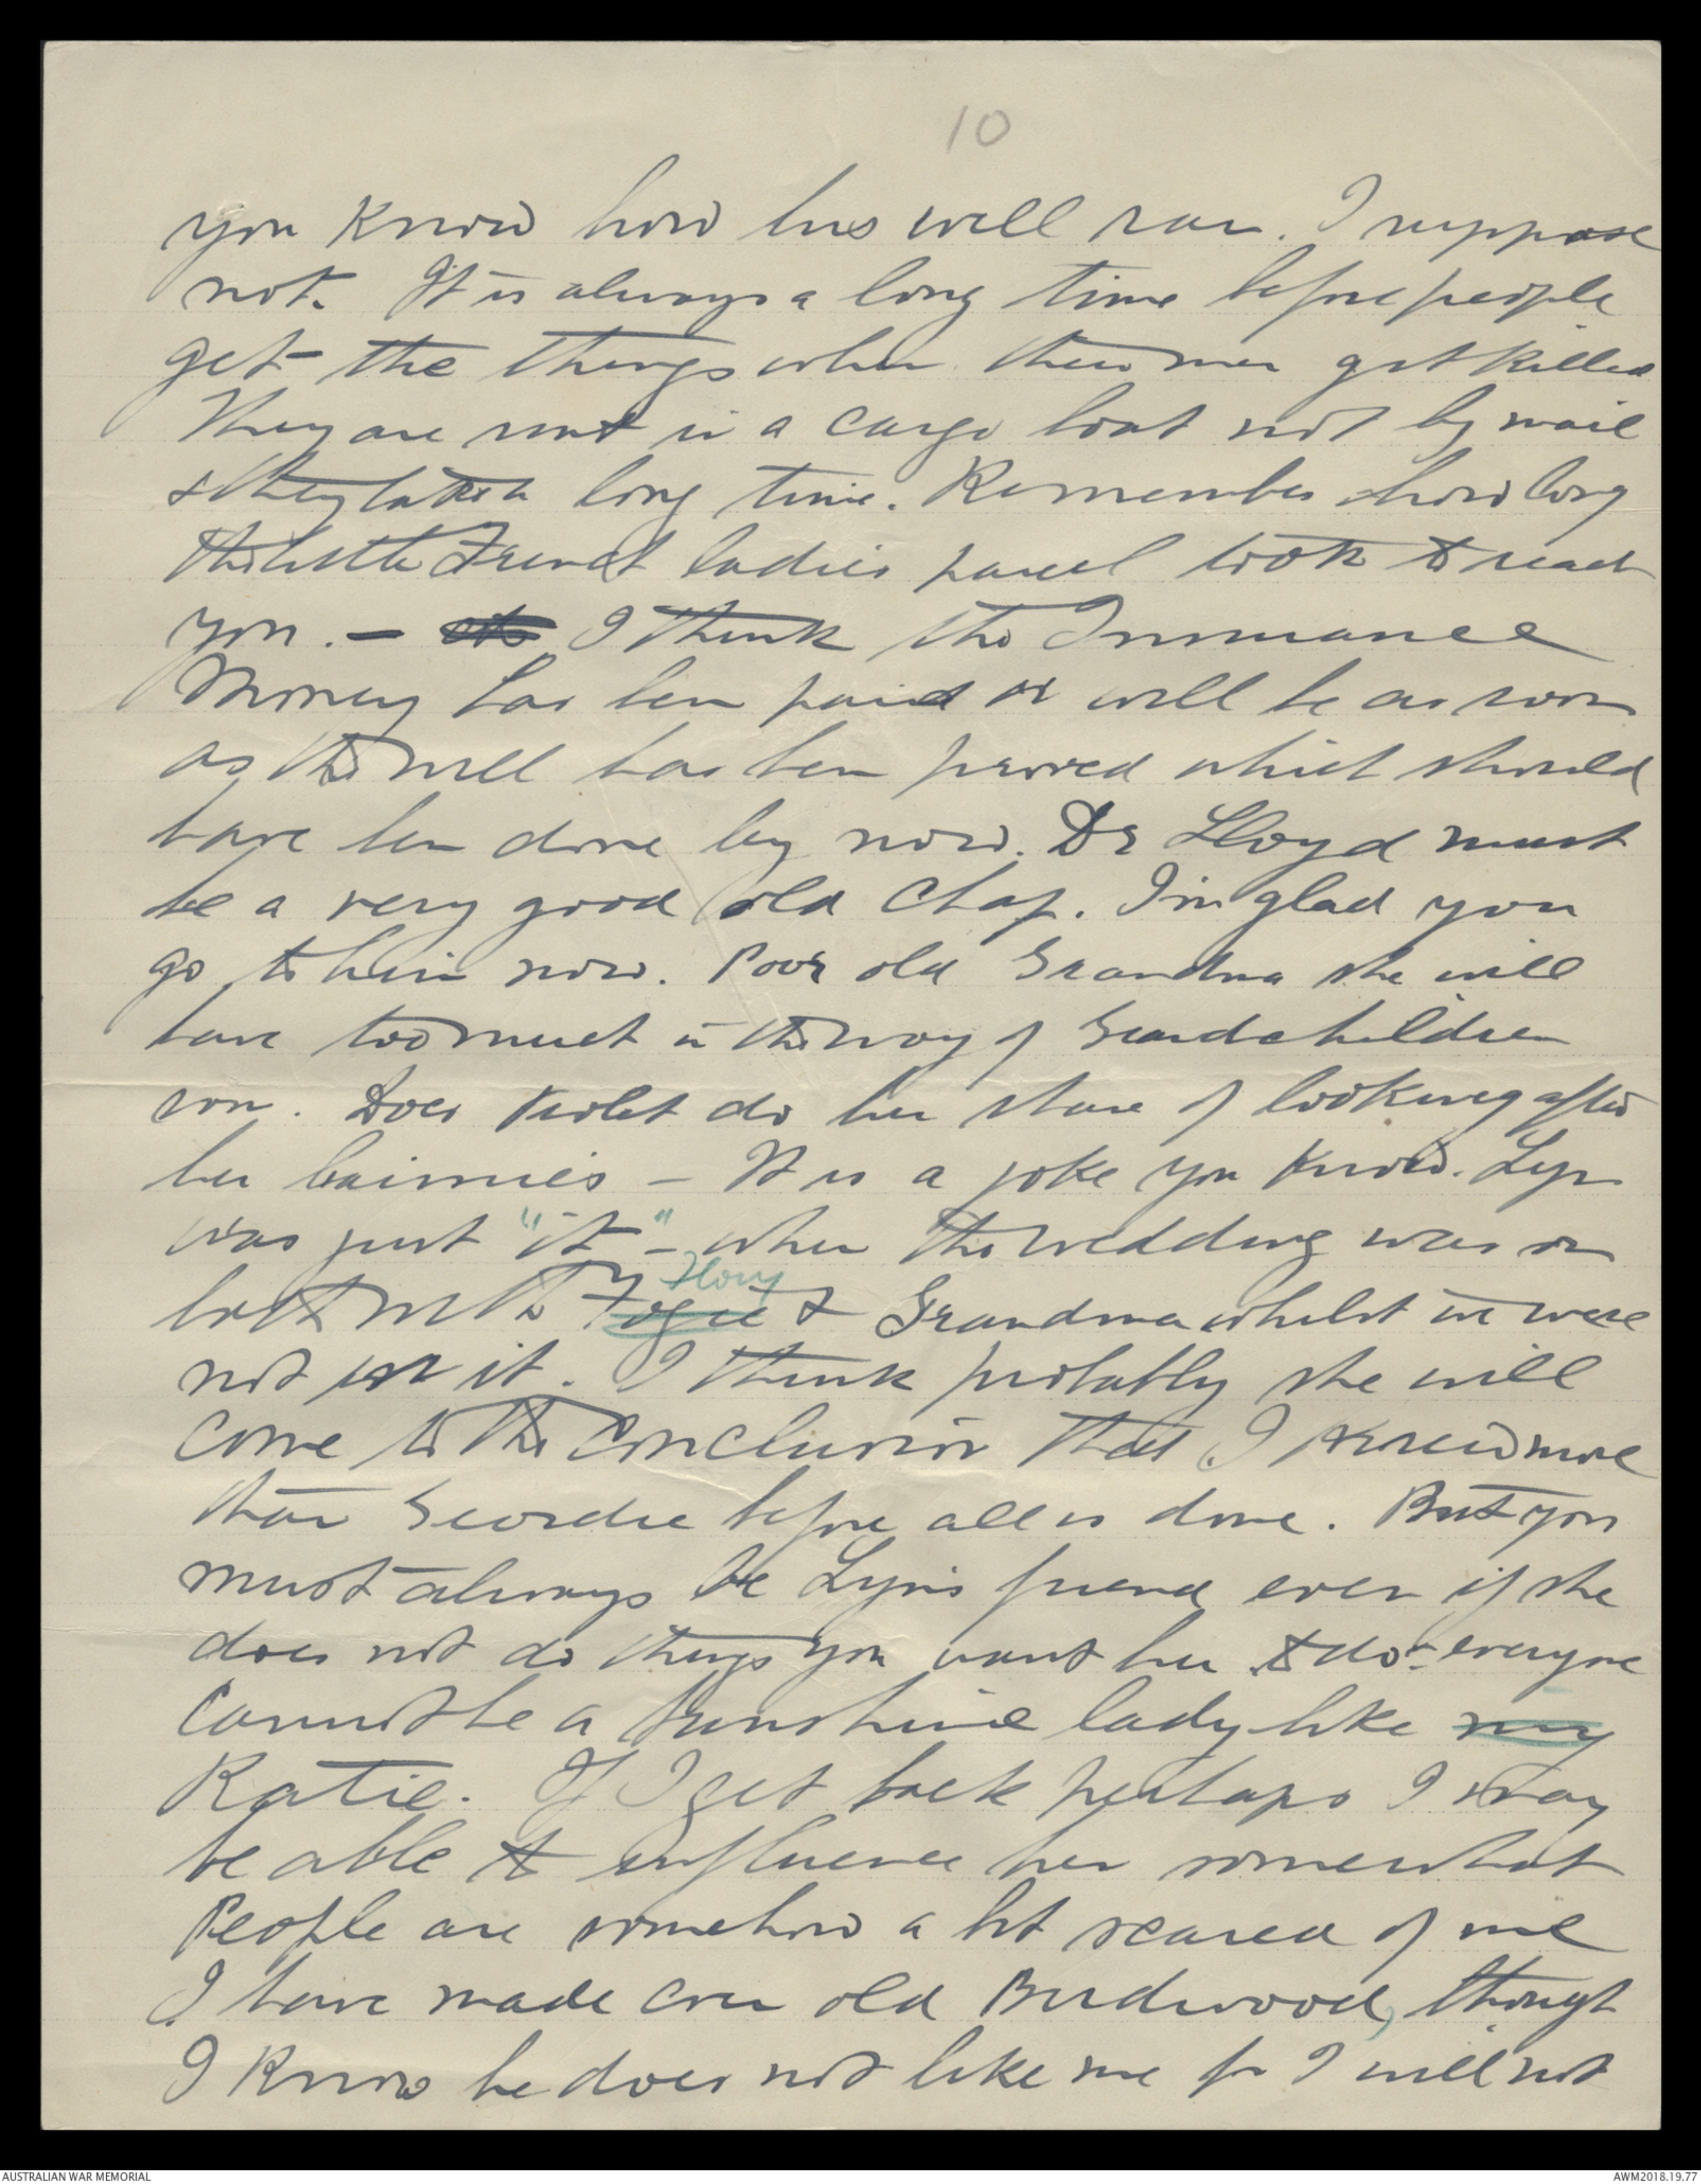 10
you know how his will ran. I suppose
not. It is always a long time before people
get the things when their men get killed
They are sent in a cargo boat not by mail
& they take a long time. Remember how long
the little French ladies parcel took to reach
you. — I think the Insurance
Money has been paid or will be as soon
as the will has been proved which should
have been done by now. Dr Lloyd must
be a very good old chap. I'm glad you
go to him now. Poor old Grandma she will
have too much in the way of Grandchildren
son. Does Violet do her share of looking after
her bairnies – It is a joke you know. Lyn
was just "it" – when the wedding was on
both with Fogie Flory & Grandma whilst we were
not in it. I think probably she will
come to the conclusion that I knew more
than Geordie before all is done. But you
must always be Lyn's friend even if she
does not do things you want her to do – everyone
cannot be a sunshine lady like my
Katie. If I get back perhaps I may
be able to influence her somewhat
People are somehow a bit scared of me
I have made even old Birdwood, though
I know he does not like me for I will not
AUSTRALIAN WAR MEMORIAL
AWM2018.19.77